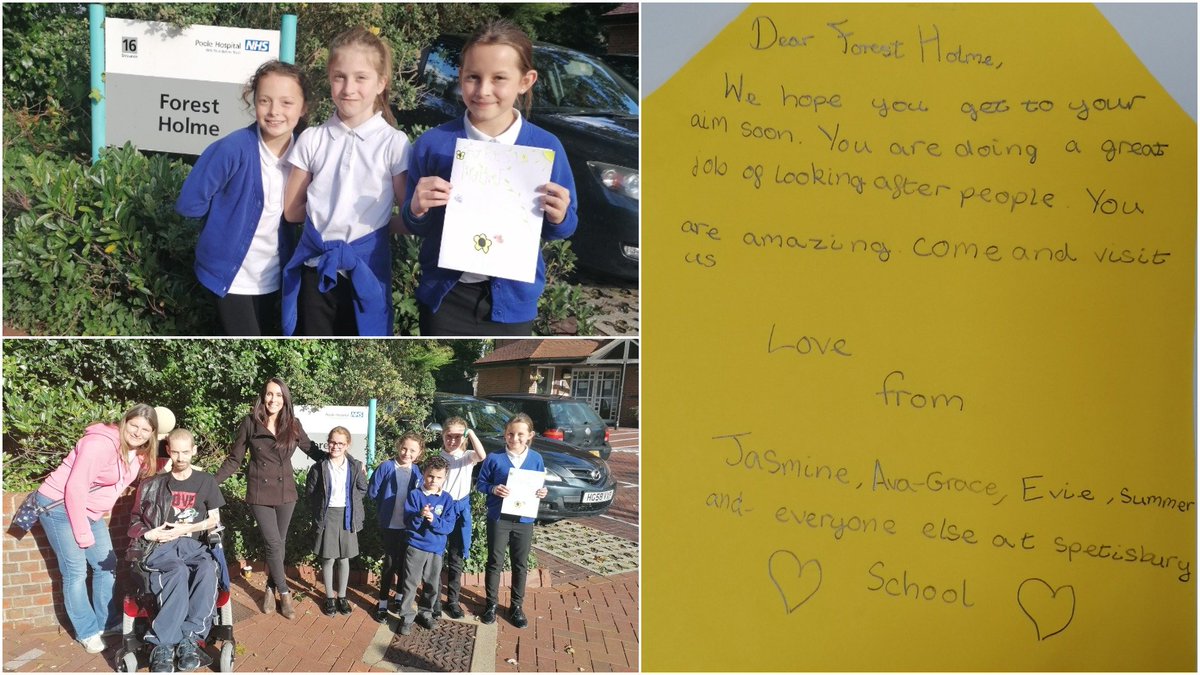 16
Entrance
Poole Hospital NHS
NHS Foundation Trust
Forest
Holme
Poole Hospital NHS
Fore
LOVE
Dear Forest Holme,
We hope you get to your
aim soon. You are doing a great
job of looking after people. You
are amazing. come and visit
us
Love
from
Jasmine, Ava-Grace, Evie, Summer
and everyone else at spetisbury
School